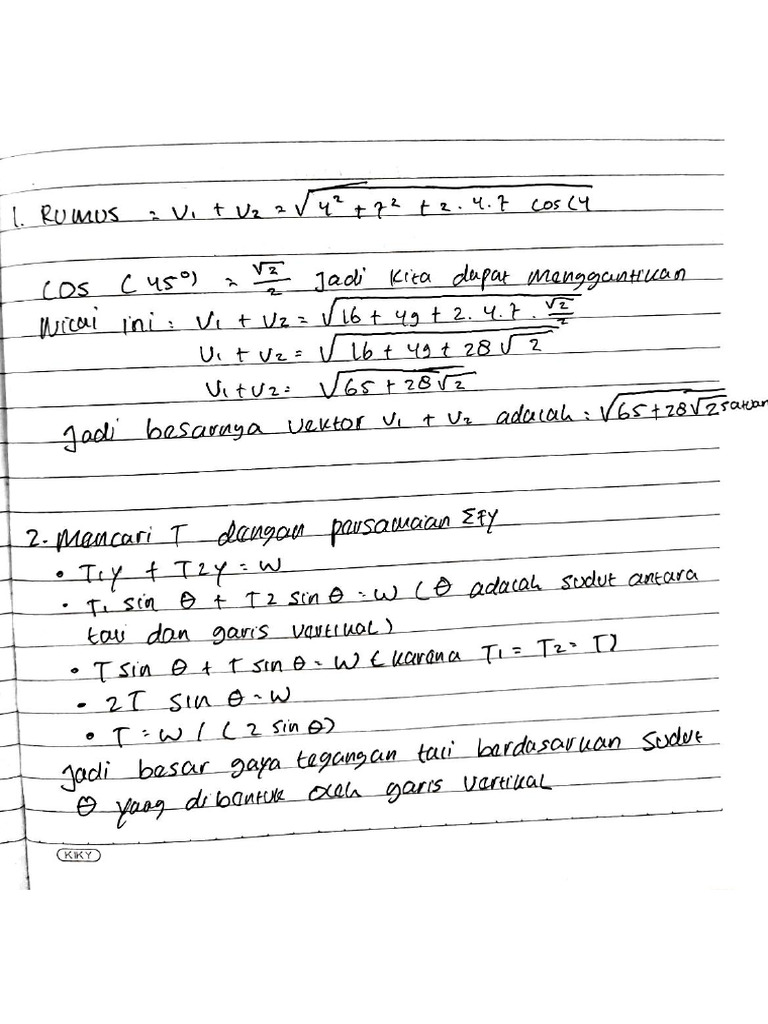 1. RUMUS = V1 + V2 = √4² + 7² + 2. 4. 7 cos (4
COS (45°) = √2/2 Jadi kita dapat menggantikan
Nilai ini : V1 + V2 = √16 + 49 + 2. 4. 7 . √2/2
V1 + V2 = √16 + 49 + 28√2
V1 + V2 = √65 + 28√2
Jadi besarnya vektor V1 + V2 adalah : √65 + 28√2 satuan
2. Mencari T dengan persamaian Σfy
• T1y + T2y = W
• T1 sin θ + T2 sin θ = W (θ adalah sudut antara
tali dan garis vertikal)
• T sin θ + T sin θ = W (karena T1 = T2 = T)
• 2T sin θ = W
• T = W / (2 sin θ)
Jadi besar gaya tegangan tali berdasarkan sudut
θ yang dibentuk oleh garis vertikal
KIKY